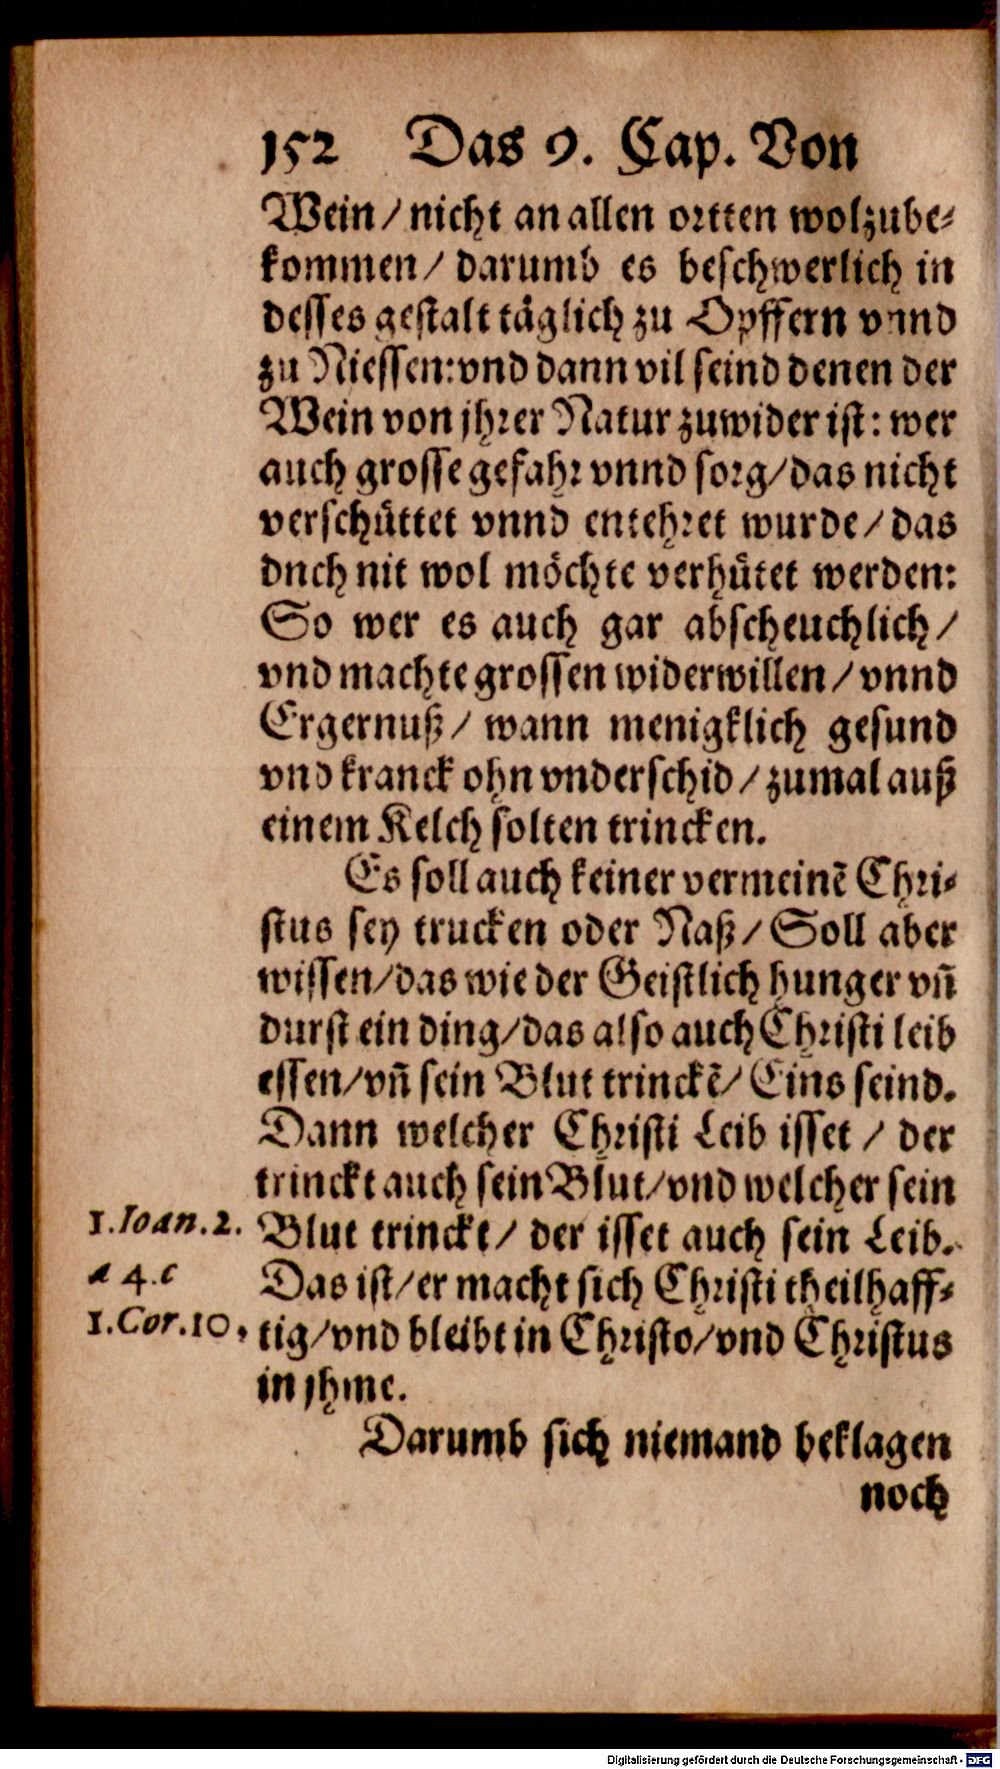 152 Das 9. Cap. Von
Wein / nicht an allen ortten wolzube-
kommen / darumb es beschwerlich in
desses gestalt täglich zu Opffern vnnd
zu Niessen: vnd dann vil seind denen der
Wein von jhrer Natur zuwider ist: wer
auch grosse gefahr vnnd sorg / das nicht
verschüttet vnnd entehret wurde / das
dnch nit wol möchte verhütet werden:
So wer es auch gar abscheuchlich /
vnd machte grossen widerwillen / vnnd
Ergernuß / wann menigklich gesund
vnd kranck ohn vnderschid / zumal auß
einem Kelch solten trincken.
Es soll auch keiner vermeinē Chri-
stus sey trucken oder Naß / Soll aber
wissen / das wie der Geistlich hunger vñ
durst ein ding / das also auch Christi leib
essen / vñ sein Blut trinckē / Eins seind.
Dann welcher Christi Leib isset / der
trinckt auch sein Blut / vnd welcher sein
1. Ioan. 2. Blut trinckt / der isset auch sein Leib.
a 4. c Das ist / er macht sich Christi theilhaff-
1. Cor. 10, tig / vnd bleibt in Christo / vnd Christus
in jhme.
Darumb sich niemand beklagen
noch
Digitalisierung gefördert durch die Deutsche Forschungsgemeinschaft - DFG